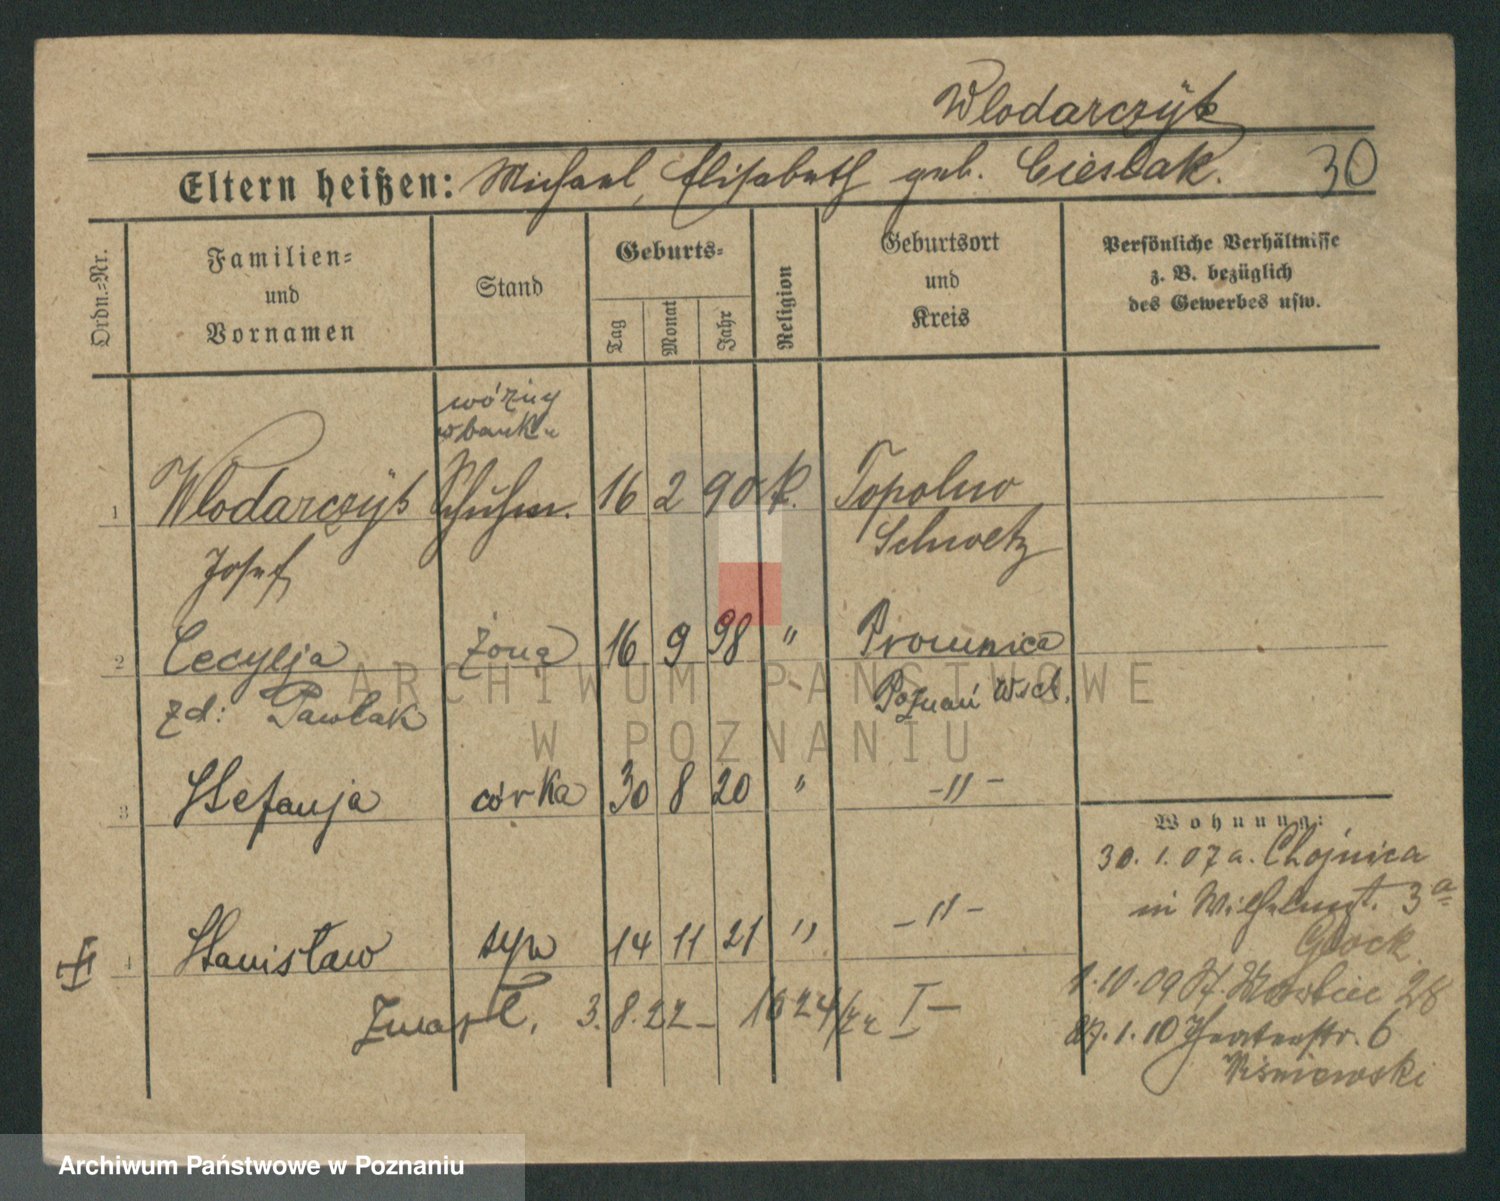 Wlodarczyk
Eltern heißen: Michael, Elisabeth geb. Cieslak. 30
Ordn.-Nr.
Familien- und Vornamen
Stand
Geburts-
Tag
Monat
Jahr
Religion
Geburtsort und Kreis
Persönliche Verhältnisse z. B. bezüglich des Gewerbes usw.
woźny
w banku
1 Wlodarczyk Schuhm. 16 2 90 k. Topolno
Josef Schwetz
2 Cecylja żona 16 9 98 " Promnice
zd: Pawlak Poznań Wsch.
3 Stefanja córka 30 8 20 " -"-
Wohnung:
30. 1. 07 a. Chojnica
in Wilhelmst. 3a
Glock
4 Stanisław syn 14 11 21 " -"-
Zmarł. 3. 8. 22 - 1624/22 I -
1. 10. 09 28
27. 1. 10 6
Wiśniewski
ARCHIWUM PAŃSTWOWE
W POZNANIU
Archiwum Państwowe w Poznaniu